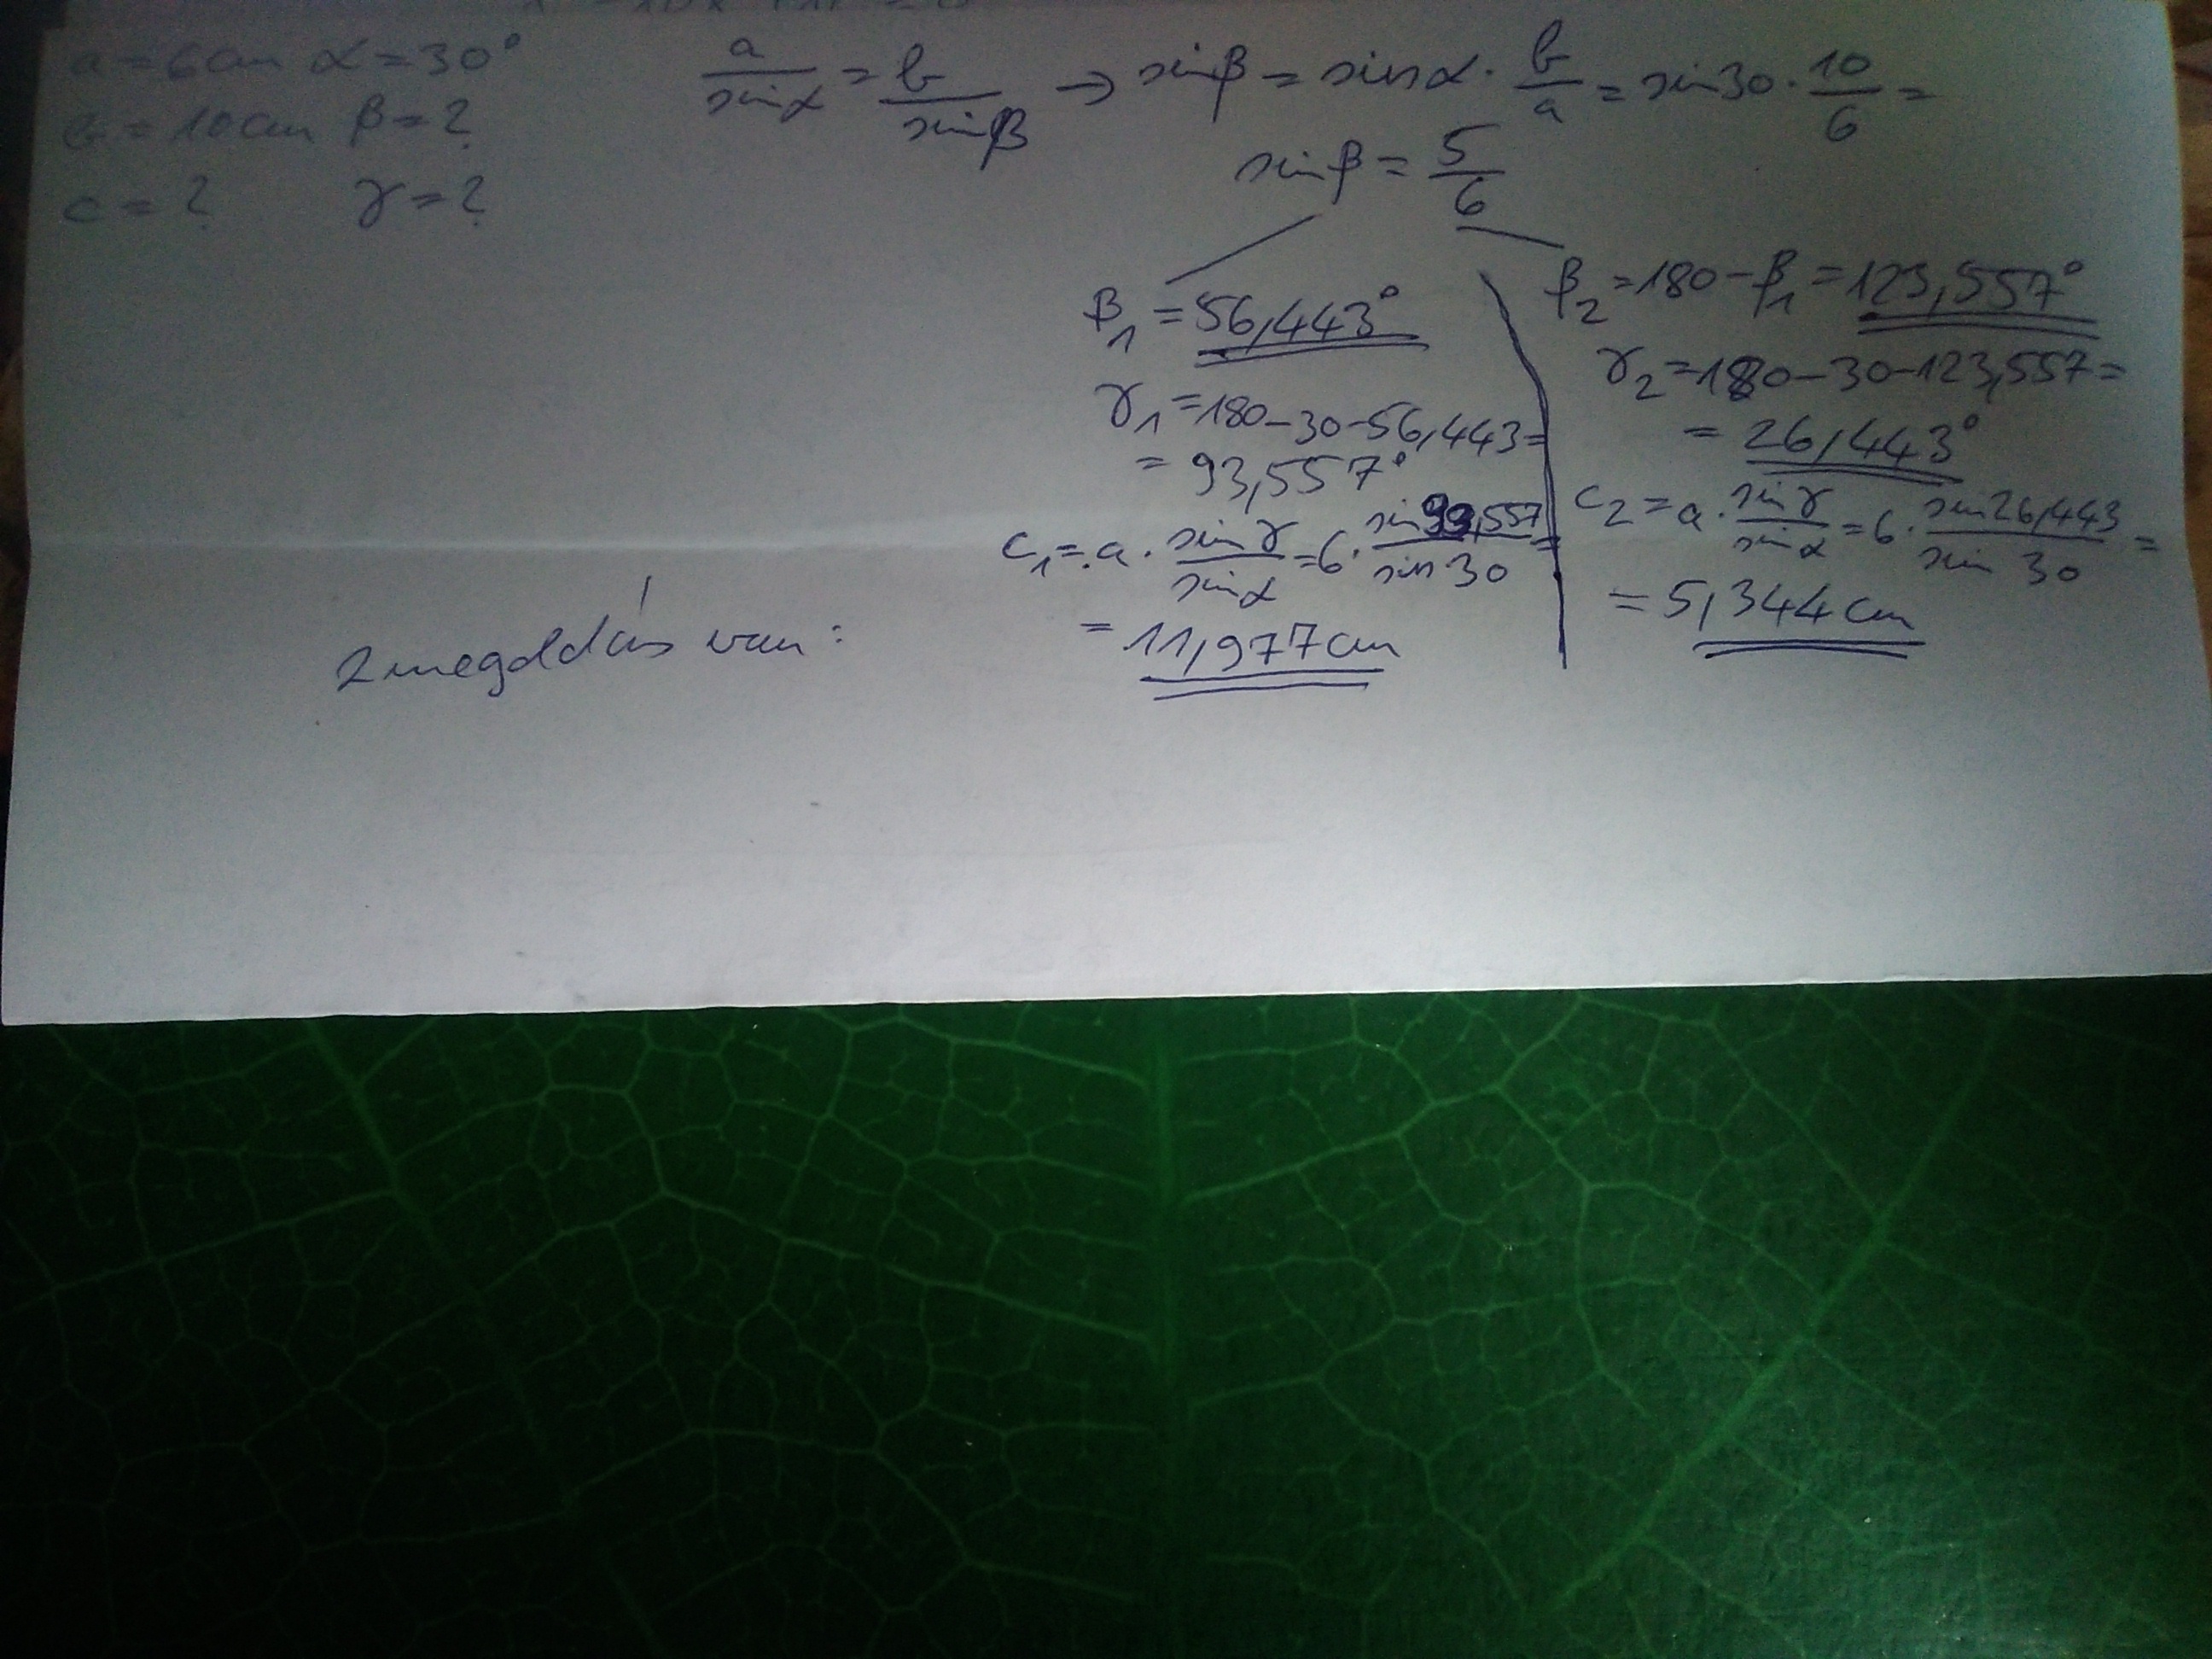 a = 6cm α = 30°
b = 10cm β = ?
c = ? γ = ?
a/sinα = b/sinβ → sinβ = sinα · b/a = sin30 · 10/6 =
sinβ = 5/6
β₁ = 56,443°
γ₁ = 180 - 30 - 56,443 =
= 93,557°
c₁ = a · sinγ/sinα = 6 · sin93,557/sin30 =
= 11,977cm
β₂ = 180 - β₁ = 123,557°
γ₂ = 180 - 30 - 123,557 =
= 26,443°
c₂ = a · sinγ/sinα = 6 · sin26,443/sin 30 =
= 5,344cm
2 megoldás van: